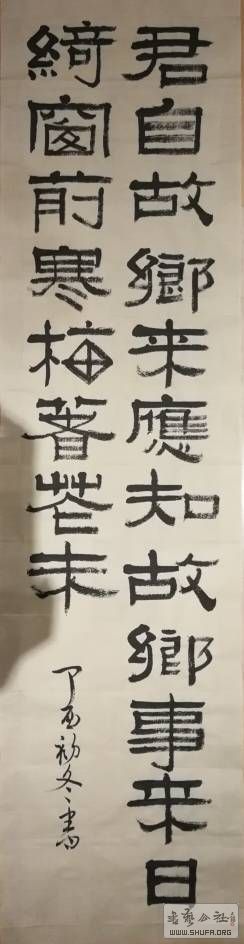 君自故鄉来應知故鄉事来日
綺窗前寒梅著花未
丁酉初冬書
书艺公社
WWW.SHUFA.ORG